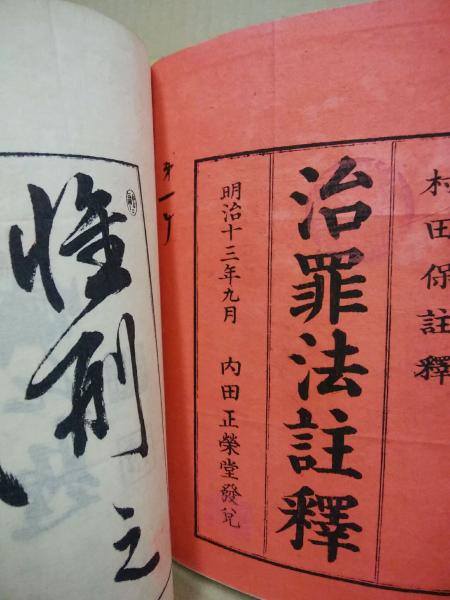 村田保註釋
治罪法註釋
明治十三年九月 內田正榮堂發兌
惟刑之